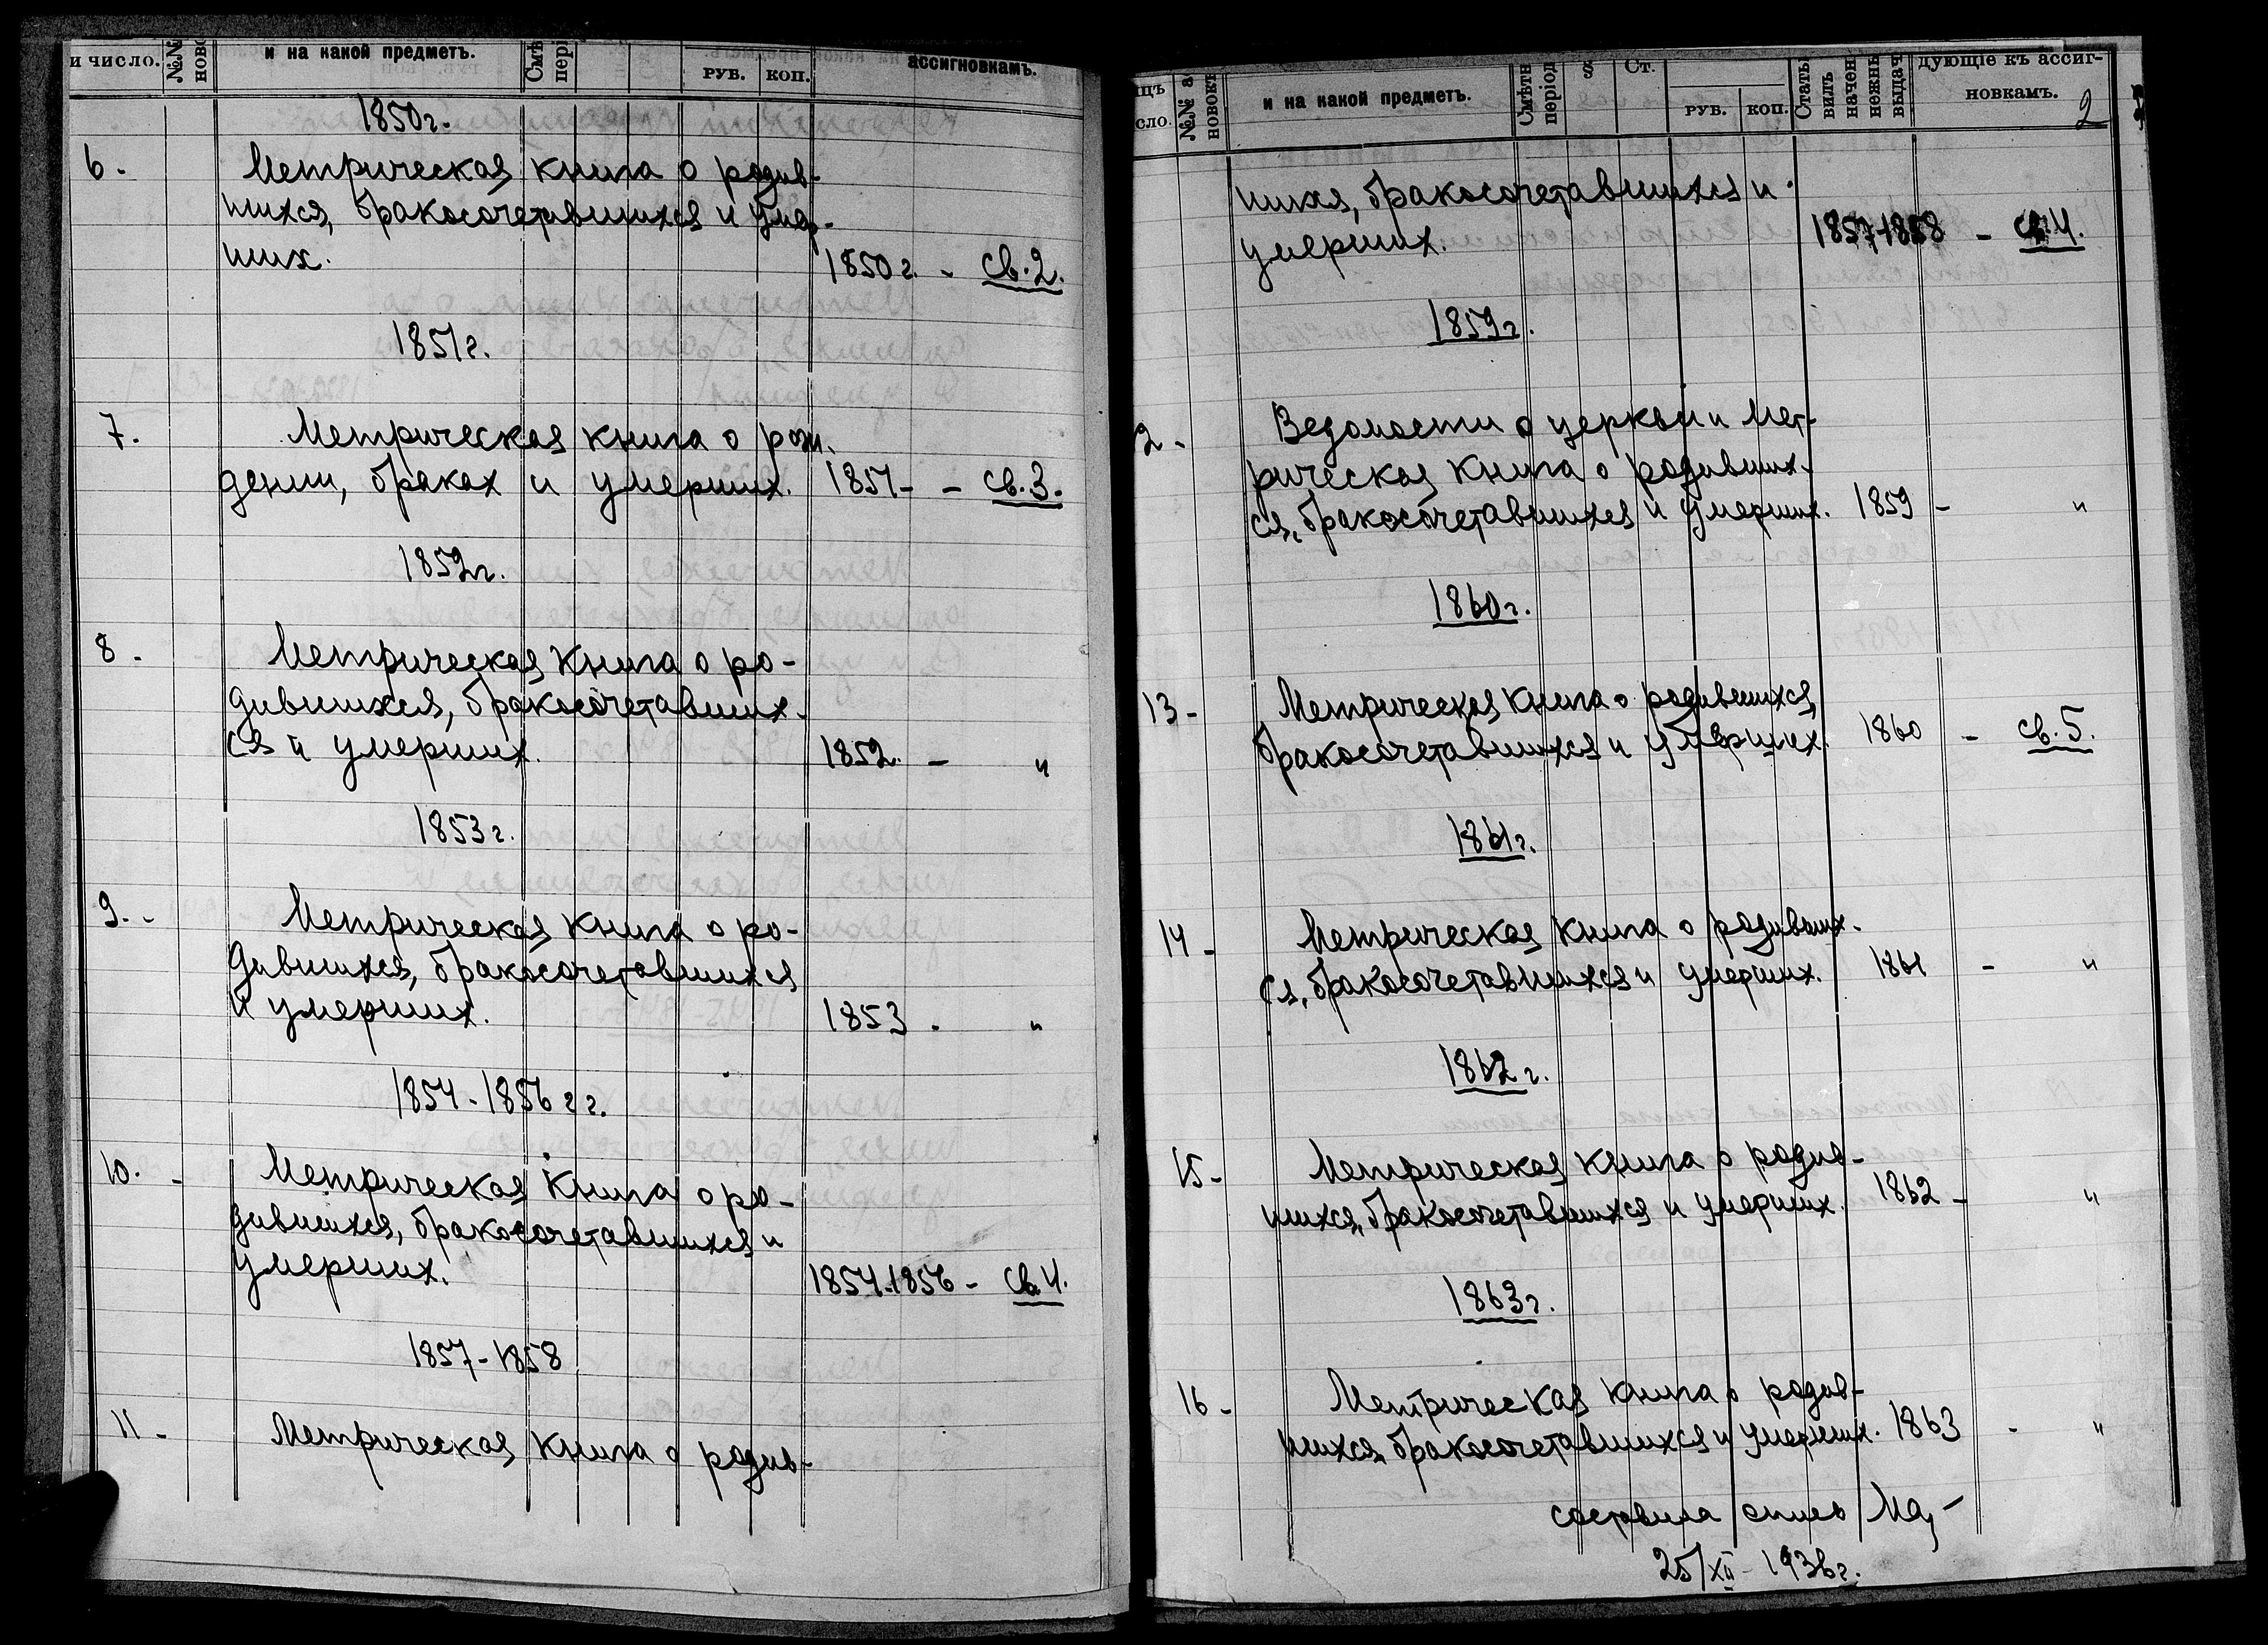 и число.
№№
ново
и на какой предметъ.
Смѣ
пері
РУБ.
КОП.
ассигновкамъ.
1850г.
6.
Метрическая книга о родив-
шихся, бракосочетавшихся и умер-
ших.
1850г. - св. 2.
1851г.
7.
Метрическая книга о рож-
дении, браках и умерших. 1851 - - св. 3.
1852г.
8.
Метрическая книга о ро-
дившихся, бракосочетавших-
ся и умерших.
1852. - "
1853г.
9. -
Метрическая книга о ро-
дившихся, бракосочетавшихся
и умерших.
1853 - "
1854-1856 гг.
10. -
Метрическая книга о ро-
дившихся, бракосочетавшихся и
умерших.
1854-1856 - св. 4.
1857-1858
11 -
Метрическая книга о родив-
яцъ
сло.
№№ а
новокъ
и на какой предметъ.
Смѣтн
період
§
Ст.
РУБ.
КОП.
Стать
вилъ
начен
нежны
выдач
дующіе къ ассиг-
новкамъ.
2
шихся, бракосочетавшихся и
умерших.
1857-1858 - св. 4.
1859г.
2 -
Ведомости о церкви и мет-
рическая книга о родивших-
ся, бракосочетавшихся и умерших. 1859 - "
1860г.
13 -
Метрическая книга о родившихся,
бракосочетавшихся и умерших. 1860 - св. 5.
1861г.
14 -
Метрическая книга о родивших-
ся, бракосочетавшихся и умерших. 1861 - "
1862г.
15 -
Метрическая книга о родив-
шихся, бракосочетавшихся и умерших. 1862 - "
1863г.
16 -
Метрическая книга о родив-
шихся, бракосочетавшихся и умерших. 1863 - "
составила опись
25/XII - 1936г.